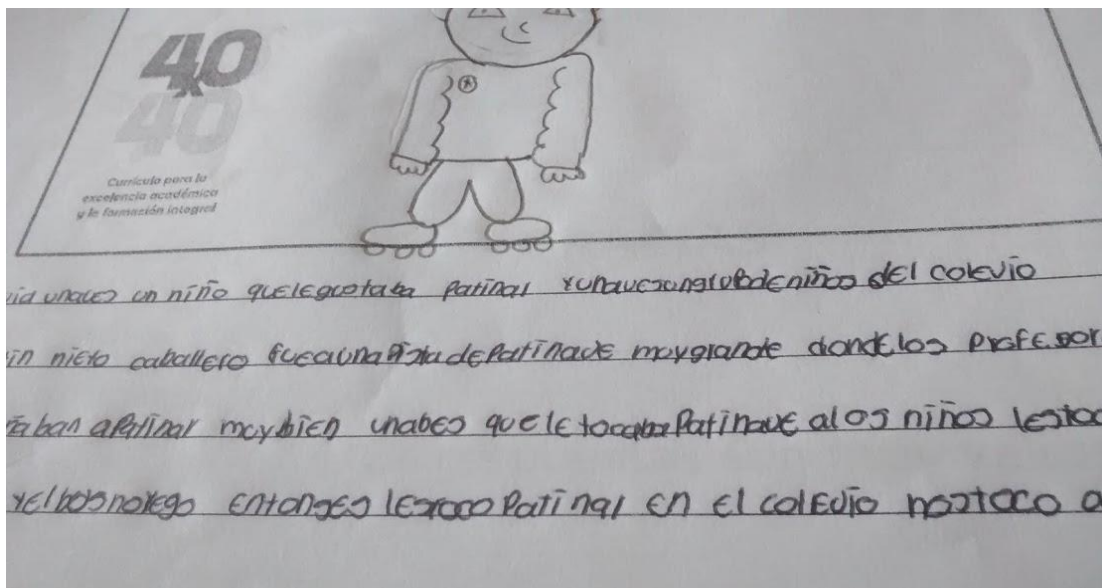 40
x
40
Currículo para la
excelencia académica
y la formación integral
via unaves un niño quelegustaba patinar yunavesungrupodeniños del colevio
in nieto caballero fueaunaPistadePatinave muygrande dondelos profesor
ñaban aPatinar muybien unabes que letocabaPatinave alos niños lestoc
yelbosnoyego entonses lestocoPatinar en el colevio nostoco a